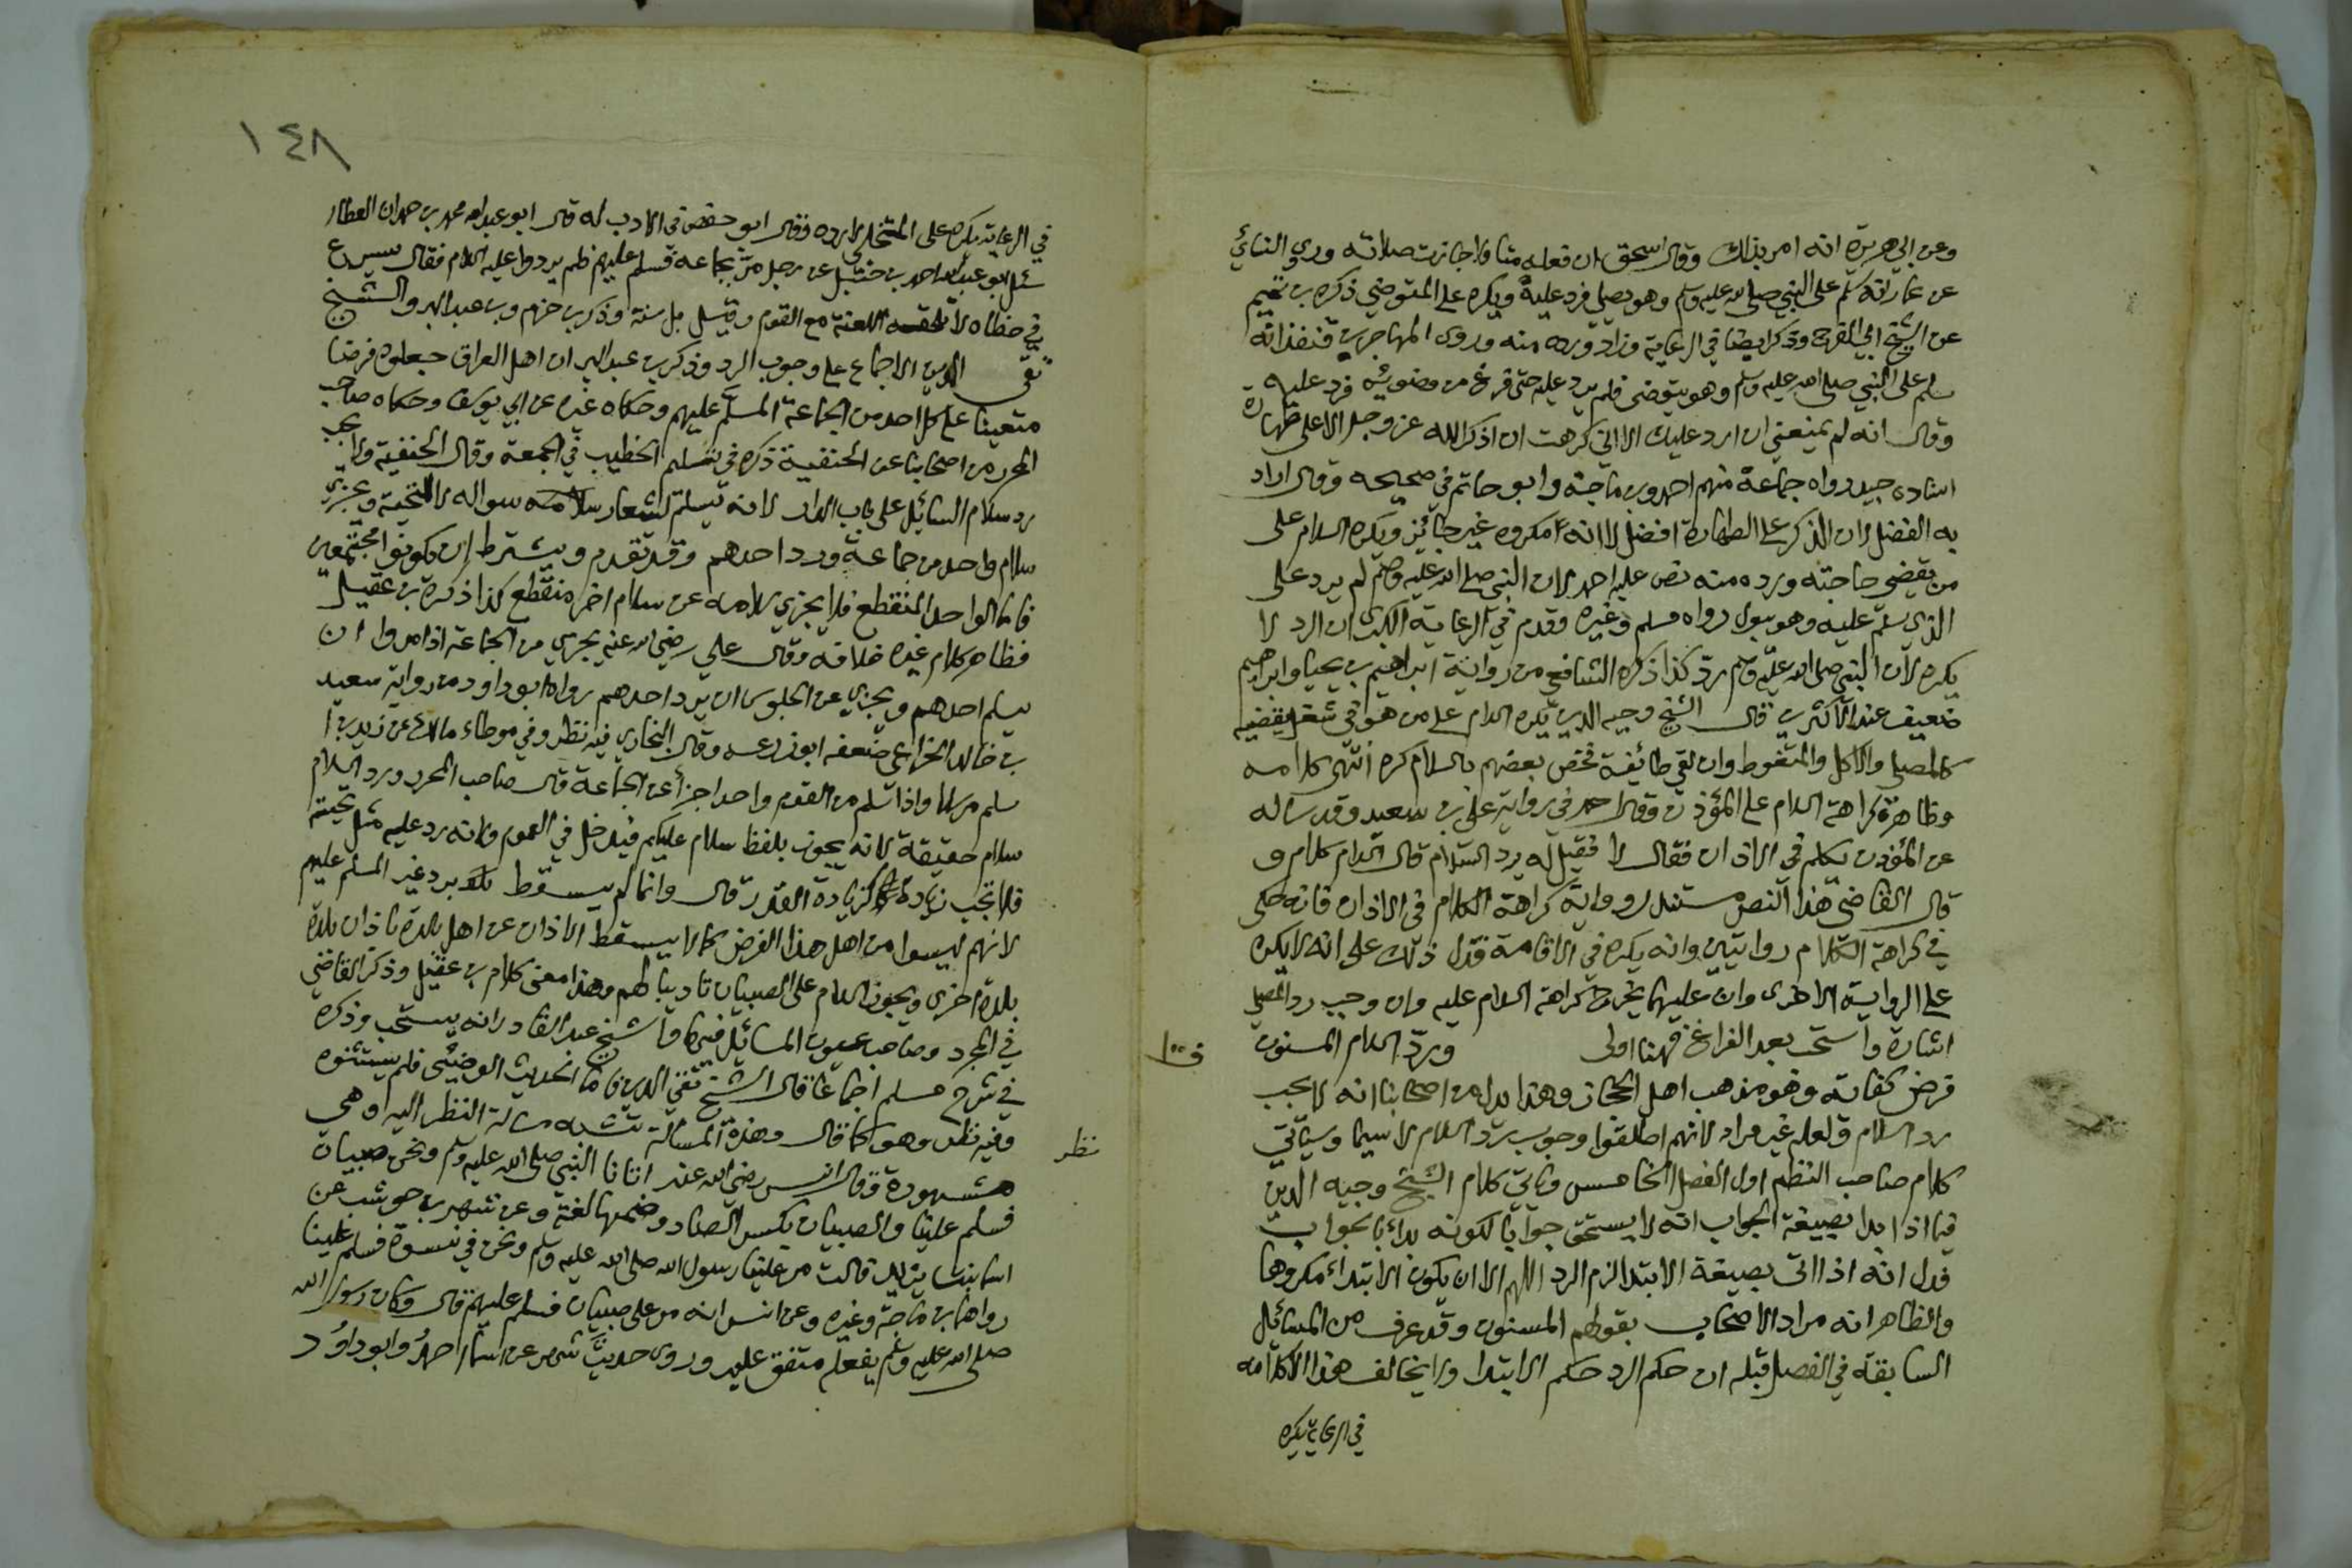 وعن ابي هريرة انه امر بذلك وقال اسحق ان فعله متاولا جازت صلاته وروى النسائي
عن عمار انه سلم على النبي صلى الله عليه وسلم وهو يصلي فرد عليه ويكره على المتوضي ذكره بن تميم
عن الشيخ ابي الفرج وذكر ايضا في الرعاية وزاد ورده منه وروى المهاجر بن قنفذ انه
سلم على النبي صلى الله عليه وسلم وهو يتوضى فلم يرد عليه حتى فرغ من وضوئه فرد عليه
وقال انه لم يمنعني ان ارد عليك الا اني كرهت ان اذكر الله عز وجل الا على طهارة
اسناده جيد رواه جماعة منهم احمد وبن ماجة وابو حاتم في صحيحه وقال اراد
به الفضل لان الذكر على الطهارة افضل لا انه مكروه غير جائز ويكره السلام على
من يقضي حاجته ورده منه نص عليه احمد لان النبي صلى الله عليه وسلم لم يرد على
الذي سلم عليه وهو يبول رواه مسلم وغيره وقدم في الرعاية الكبرى ان الرد لا
يكره لان النبي صلى الله عليه وسلم رد كذا ذكره الشافعي من رواية ابراهيم بن يحيا وابراهيم
ضعيف عند الاكثرين قال الشيخ وجيه الدين يكره السلام على من هو في شغل يقضيه
كالمصلي والاكل والمتغوط وان لقي طائفة فخص بعضهم بالسلام كره انتهى كلامه
وظاهره كراهة السلام على المؤذن وقال احمد في رواية علي بن سعيد وقد ساله
عن المؤذن يتكلم في الاذان فقال لا فقيل له يرد السلام قال السلام كلام و
قال القاضي هذا النص مستند لرواية كراهة الكلام في الاذان فانه حكى
في كراهة الكلام روايتين وانه يكره في الاقامة فدل ذلك على انه لا يكره
على الرواية الاخرى وان عليهما يخرج كراهة السلام عليه وان وجب رد المصلي
اشارة واستحب بعد الفراغ فهنا اولى ورد السلام المسنون
فرض كفاية وهو مذهب اهل الحجاز وهذا يدل من اصحابنا انه لا يجب
رد السلام ولعله غير مراد لانهم اطلقوا وجوب رد السلام لا سيما وسياتي
كلام صاحب النظم اول الفصل الخامس وياتي كلام الشيخ وجيه الدين
فيما اذا بدا بصيغة الجواب انه لا يستحق جوابا لكونه بدأ بالجواب
فدل انه اذا اتى بصيغة الابتدا لزم الرد اللهم الا ان يكون الابتداء مكروها
والظاهر انه مراد الاصحاب بقولهم المسنون وقد عرف من المسائل
السابقة في الفصل قبله ان حكم الرد حكم الابتدا ولا يخالف هذا الا كلامه
في الرعاية يكره
١٤٨
في الرعاية يكره على المتخلي لا رده وقال ابو حفص في الادب له قال ابو عبد الله محمد بن حمدان العطار
سئل ابو عبد الله احمد بن حنبل عن رجل مر بجماعة فسلم عليهم فلم يردوا عليه السلام فقال يسرع
في خطاه لا تلحقه اللعنة مع القوم وقيل بل سنة وذكر بن حزم وبن عبد البر والشيخ
تقي الدين الاجماع على وجوب الرد وذكر بن عبد البر ان اهل العراق جعلوه فرضا
متعينا على كل احد من الجماعة المسلم عليهم وحكاه غيره عن ابي يوسف وحكاه صاحب
المحرر من اصحابنا عن الحنفية ذكره في تسليم الخطيب في الجمعة وقال الحنفية ولا يجب
رد سلام السائل على باب الدار لانه يسلم لشعار سواله لا للتحية ويجزي
سلام واحد من جماعة ورد احدهم وقد تقدم ويشترط ان يكونوا مجتمعين
فاما الواحد المنقطع فلا يجزي سلامه عن سلام اخر منقطع كذا ذكره بن عقيل
وظاهر كلام غيره خلافه وقال علي رضي الله عنه يجزي من الجماعة اذا مروا ان
يسلم احدهم ويجزي عن الجلوس ان يرد احدهم رواه ابو داود من رواية سعيد
بن خالد الخزاعي ضعفه ابو زرعه وقال البخاري فيه نظر وفي موطاء مالك عن زيد بن ا
سلم مرسلا واذا سلم من القوم واحد اجزأ عن الجماعة قال صاحب المحرر ورد السلام
سلام حقيقة لانه يجوز بلفظ سلام عليكم فيدخل في العموم ولانه رد عليه مثل تحيته
فلا تجب زيادة كزيادة القدر قال وانما لم يسقط برد غير المسلم عليهم
لانهم ليسوا من اهل هذا الفرض كما لا يسقط الاذان عن اهل بلدة باذان بلدة
بلدة اخرى ويجوز السلام على الصبيان تاديبا لهم وهذا معنى كلام بن عقيل وذكر القاضي
في المجرد وصاحب عيون المسائل فيها والشيخ عبد القادر انه يستحب وذكره
في شرح مسلم اجماعا قال الشيخ تقي الدين فاما الحديث الوضيئ فلم يستثنوه
وفيه نظر وهو كما قال وهذه المسألة تشبه مسالة النظر اليه وهي
نظر
مشهورة وقال انس رضي الله عنه اتانا النبي صلى الله عليه وسلم ونحن صبيان
فسلم علينا والصبيان بكسر الصاد وضمها لغة وعن شهر بن حوشب عن
اسما بنت يزيد قالت مر علينا رسول الله صلى الله عليه وسلم ونحن في نسوة فسلم علينا
رواهما بن ماجة وغيره وعن انس انه مر على صبيان فسلم عليهم قال وكان رسول الله
صلى الله عليه وسلم يفعله متفق عليه وروى حديث شهر عن اسما احمد وابو داود